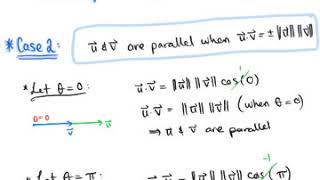 *Case 2: u⃗ & v⃗ are parallel when u⃗·v⃗ = ± ‖u⃗‖ ‖v⃗‖
*Let θ=0: u⃗·v⃗ = ‖u⃗‖ ‖v⃗‖ cos(0) 1
θ=0 u⃗·v⃗ = ‖u⃗‖ ‖v⃗‖ (when θ=0)
u⃗ v⃗ ⇒ u⃗ & v⃗ are parallel
*Let θ=π: u⃗·v⃗ = ‖u⃗‖ ‖v⃗‖ cos(π) -1